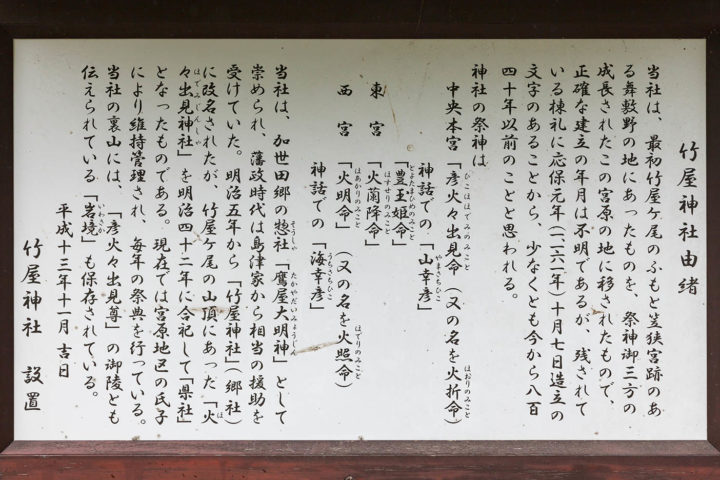 竹屋神社由緒
当社は、最初竹屋ヶ尾のふもと笠狭宮跡のあ
る舞敷野の地にあったものを、祭神御三方の
成長されたこの宮原の地に移されたもので、
正確な建立の年月は不明であるが、残されて
いる棟礼に応保元年(一一六一年)十月七日造立の
文字のあることから、少なくとも今から八百
四十年以前のことと思われる。
神社の祭神は
中央本宮「彦火々出見命(又の名を火折命)
ひこほほでみのみこと ほおりのみこと
神話での「山幸彦」
やまさちひこ
「豊玉姫命」
とよたまひめのみこと
東宮「火蘭降命」
ほすせりのみこと
西宮「火明命」(又の名を火照命)
ほあかりのみこと ほでりのみこと
神話での「海幸彦」
うみさちひこ
当社は、加世田郷の惣社「鷹屋大明神」として
そうじゃ たかやだいみょうじん
崇められ、藩政時代は島津家から相当の援助を
受けていた。明治五年から「竹屋神社」(郷社)
に改名されたが、竹屋ケ尾の山頂にあった「火
ほ
々出見神社」を明治四十二年に合祀して「県社」
ほでみじんしゃ
となったものである。現在では宮原地区の氏子
により維持管理され、毎年の祭典を行っている。
当社の裏山には、「彦火々出見尊」の御陵とも
伝えられている「岩境」も保存されている。
いわさか
平成十三年十一月吉日
竹屋神社 設置